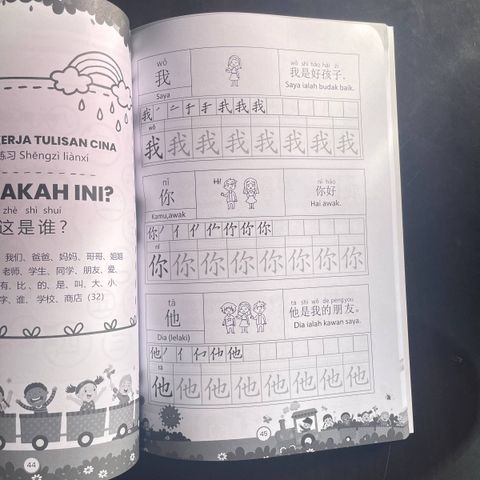 ERJA TULISAN CINA
练习 Shēngzì liànxí
AKAH INI?
zhè shì shuí
这是谁？
我们、爸爸、妈妈、哥哥、姐姐
老师、学生、同学、朋友、爱、
有、比、的、是、叫、大、小、
字、谁、学校、商店 (32)
44
wǒ
我
Saya
wǒ shì hǎo hái zi
我是好孩子.
Saya ialah budak baik.
我 一 二 于 手 我 我 我
wǒ
我 我 我 我 我 我 我 我
nǐ
你
Kamu,awak
Hi!
nǐ hǎo
你好
Hai awak.
你 丿 亻 亻 你 你 你 你
nǐ
你 你 你 你 你 你 你 你
tā
他
Dia (lelaki)
tā shì wǒ de péng you
他是我的朋友。
Dia ialah kawan saya.
他 丿 亻 他 他
tā
他 他 他 他 他 他 他
45